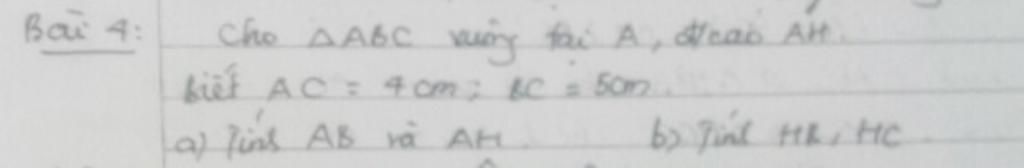 Bài 4: Cho △ABC vuông tại A, đ/cao AH.
biết AC = 4cm; BC = 5cm.
a) Tính AB và AH. b) Tính HB, HC.